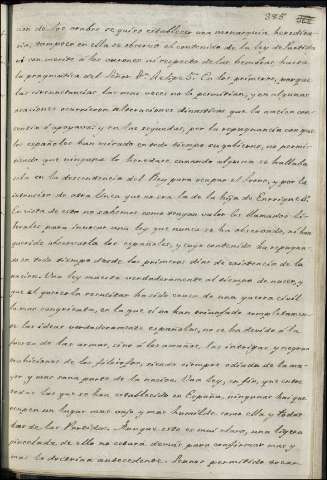 385
cion de los nombre se quiso establecer una monarquia heredita-
ria, tampoco en ella se observó el contenido de la ley de Partida
ni con respecto á los varones ni respecto de las hembras hasta
la pragmatica del Señor Dn Felipe 5º. En los primeros, porque
las circunstancias las mas veces no lo permitian, y en algunas
ocasiones ocurrieron alteraciones dinasticas que la nacion con-
sentia ó apoyava; y en las segundas, por la repugnancia con que
los españoles han mirado en todo tiempo su gobierno, no permi-
tiendo que ninguna lo heredase cuando alguna se hallaba
sola en la descendencia del Rey para ocupar el trono, y por la
intrusion de otra linea que no era la de la hija de Enrrique 4º.
En vista de esto no sabemos como tengan valor los llamados li-
berales para invocar una ley que nunca se ha observado, ni han
querido observarla los españoles, y cuyo contenido ha repugna-
do en todo tiempo desde los primeros dias de existencia de la
nacion. Una ley muerta verdaderamente al tiempo de nacer, y
que el quererla resucitar ha sido causa de una guerra civil
la mas sangrienta, en la que si no han triunfado completamen-
te las ideas verdaderamente españolas, no se ha devido á la
fuerza de las armas, sino á los amaños, las intrigas y negras
maquinaciones de los filosofos, secta siempre odiada de la ma-
yor y mas sana parte de la nacion. Una ley, en fin, que entre
todas las que se han establecido en España, ninguna hay que
ocupe un lugar mas bajo y mas humilde como ella y todas
las de las Partidas. Aunque esto es mui claro, una ligera
pincelada de ello no estará demás para confirmar mas y
mas la doctrina antecedente. Seanos permitido tocar